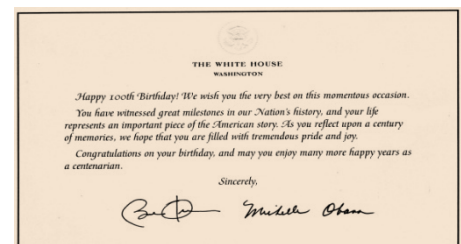 THE WHITE HOUSE
WASHINGTON
Happy 100th Birthday! We wish you the very best on this momentous occasion.
You have witnessed great milestones in our Nation's history, and your life
represents an important piece of the American story. As you reflect upon a century
of memories, we hope that you are filled with tremendous pride and joy.
Congratulations on your birthday, and may you enjoy many more happy years as
a centenarian.
Sincerely,
Michelle Obama